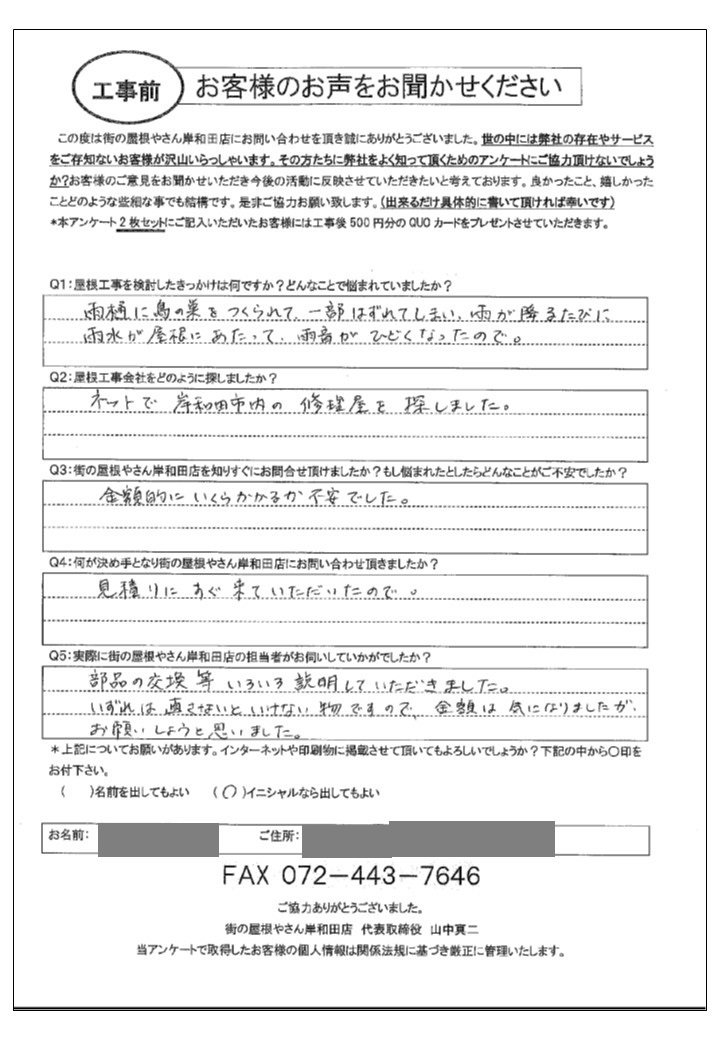 工事前
お客様のお声をお聞かせください
この度は街の屋根やさん岸和田店にお問い合わせを頂き誠にありがとうございました。世の中には弊社の存在やサービス
をご存知ないお客様が沢山いらっしゃいます。その方たちに弊社をよく知って頂くためのアンケートにご協力頂けないでしょう
か?お客様のご意見をお聞かせいただき今後の活動に反映させていただきたいと考えております。良かったこと、嬉しかった
ことどのような些細な事でも結構です。是非ご協力お願い致します。(出来るだけ具体的に書いて頂ければ幸いです)
*本アンケート2枚セットにご記入いただいたお客様には工事後500円分のQUOカードをプレゼントさせていただきます。
Q1:屋根工事を検討したきっかけは何ですか?どんなことで悩まれていましたか?
雨樋に鳥の巣をつくられて、一部はずれてしまい、雨が降るたびに
雨水が屋根にあたって、雨音がひどくなったので。
Q2:屋根工事会社をどのように探しましたか?
ネットで岸和田市内の修理屋を探しました。
Q3:街の屋根やさん岸和田店を知りすぐにお問合せ頂けましたか?もし悩まれたとしたらどんなことがご不安でしたか?
金額的にいくらかかるか不安でした。
Q4:何が決め手となり街の屋根やさん岸和田店にお問い合わせ頂きましたか?
見積りにすぐ来ていただいたので。
Q5:実際に街の屋根やさん岸和田店の担当者がお伺いしていかがでしたか?
部品の交換等いろいろ説明していただきました。
いずれは直さないといけない物ですので、金額は気になりましたが、
お願いしようと思いました。
*上記についてお願いがあります。インターネットや印刷物に掲載させて頂いてもよろしいでしょうか?下記の中から〇印を
お付下さい。
( )名前を出してもよい (〇)イニシャルなら出してもよい
お名前: ご住所:
FAX 072-443-7646
ご協力ありがとうございました。
街の屋根やさん岸和田店 代表取締役 山中真二
当アンケートで取得したお客様の個人情報は関係法規に基づき厳正に管理いたします。